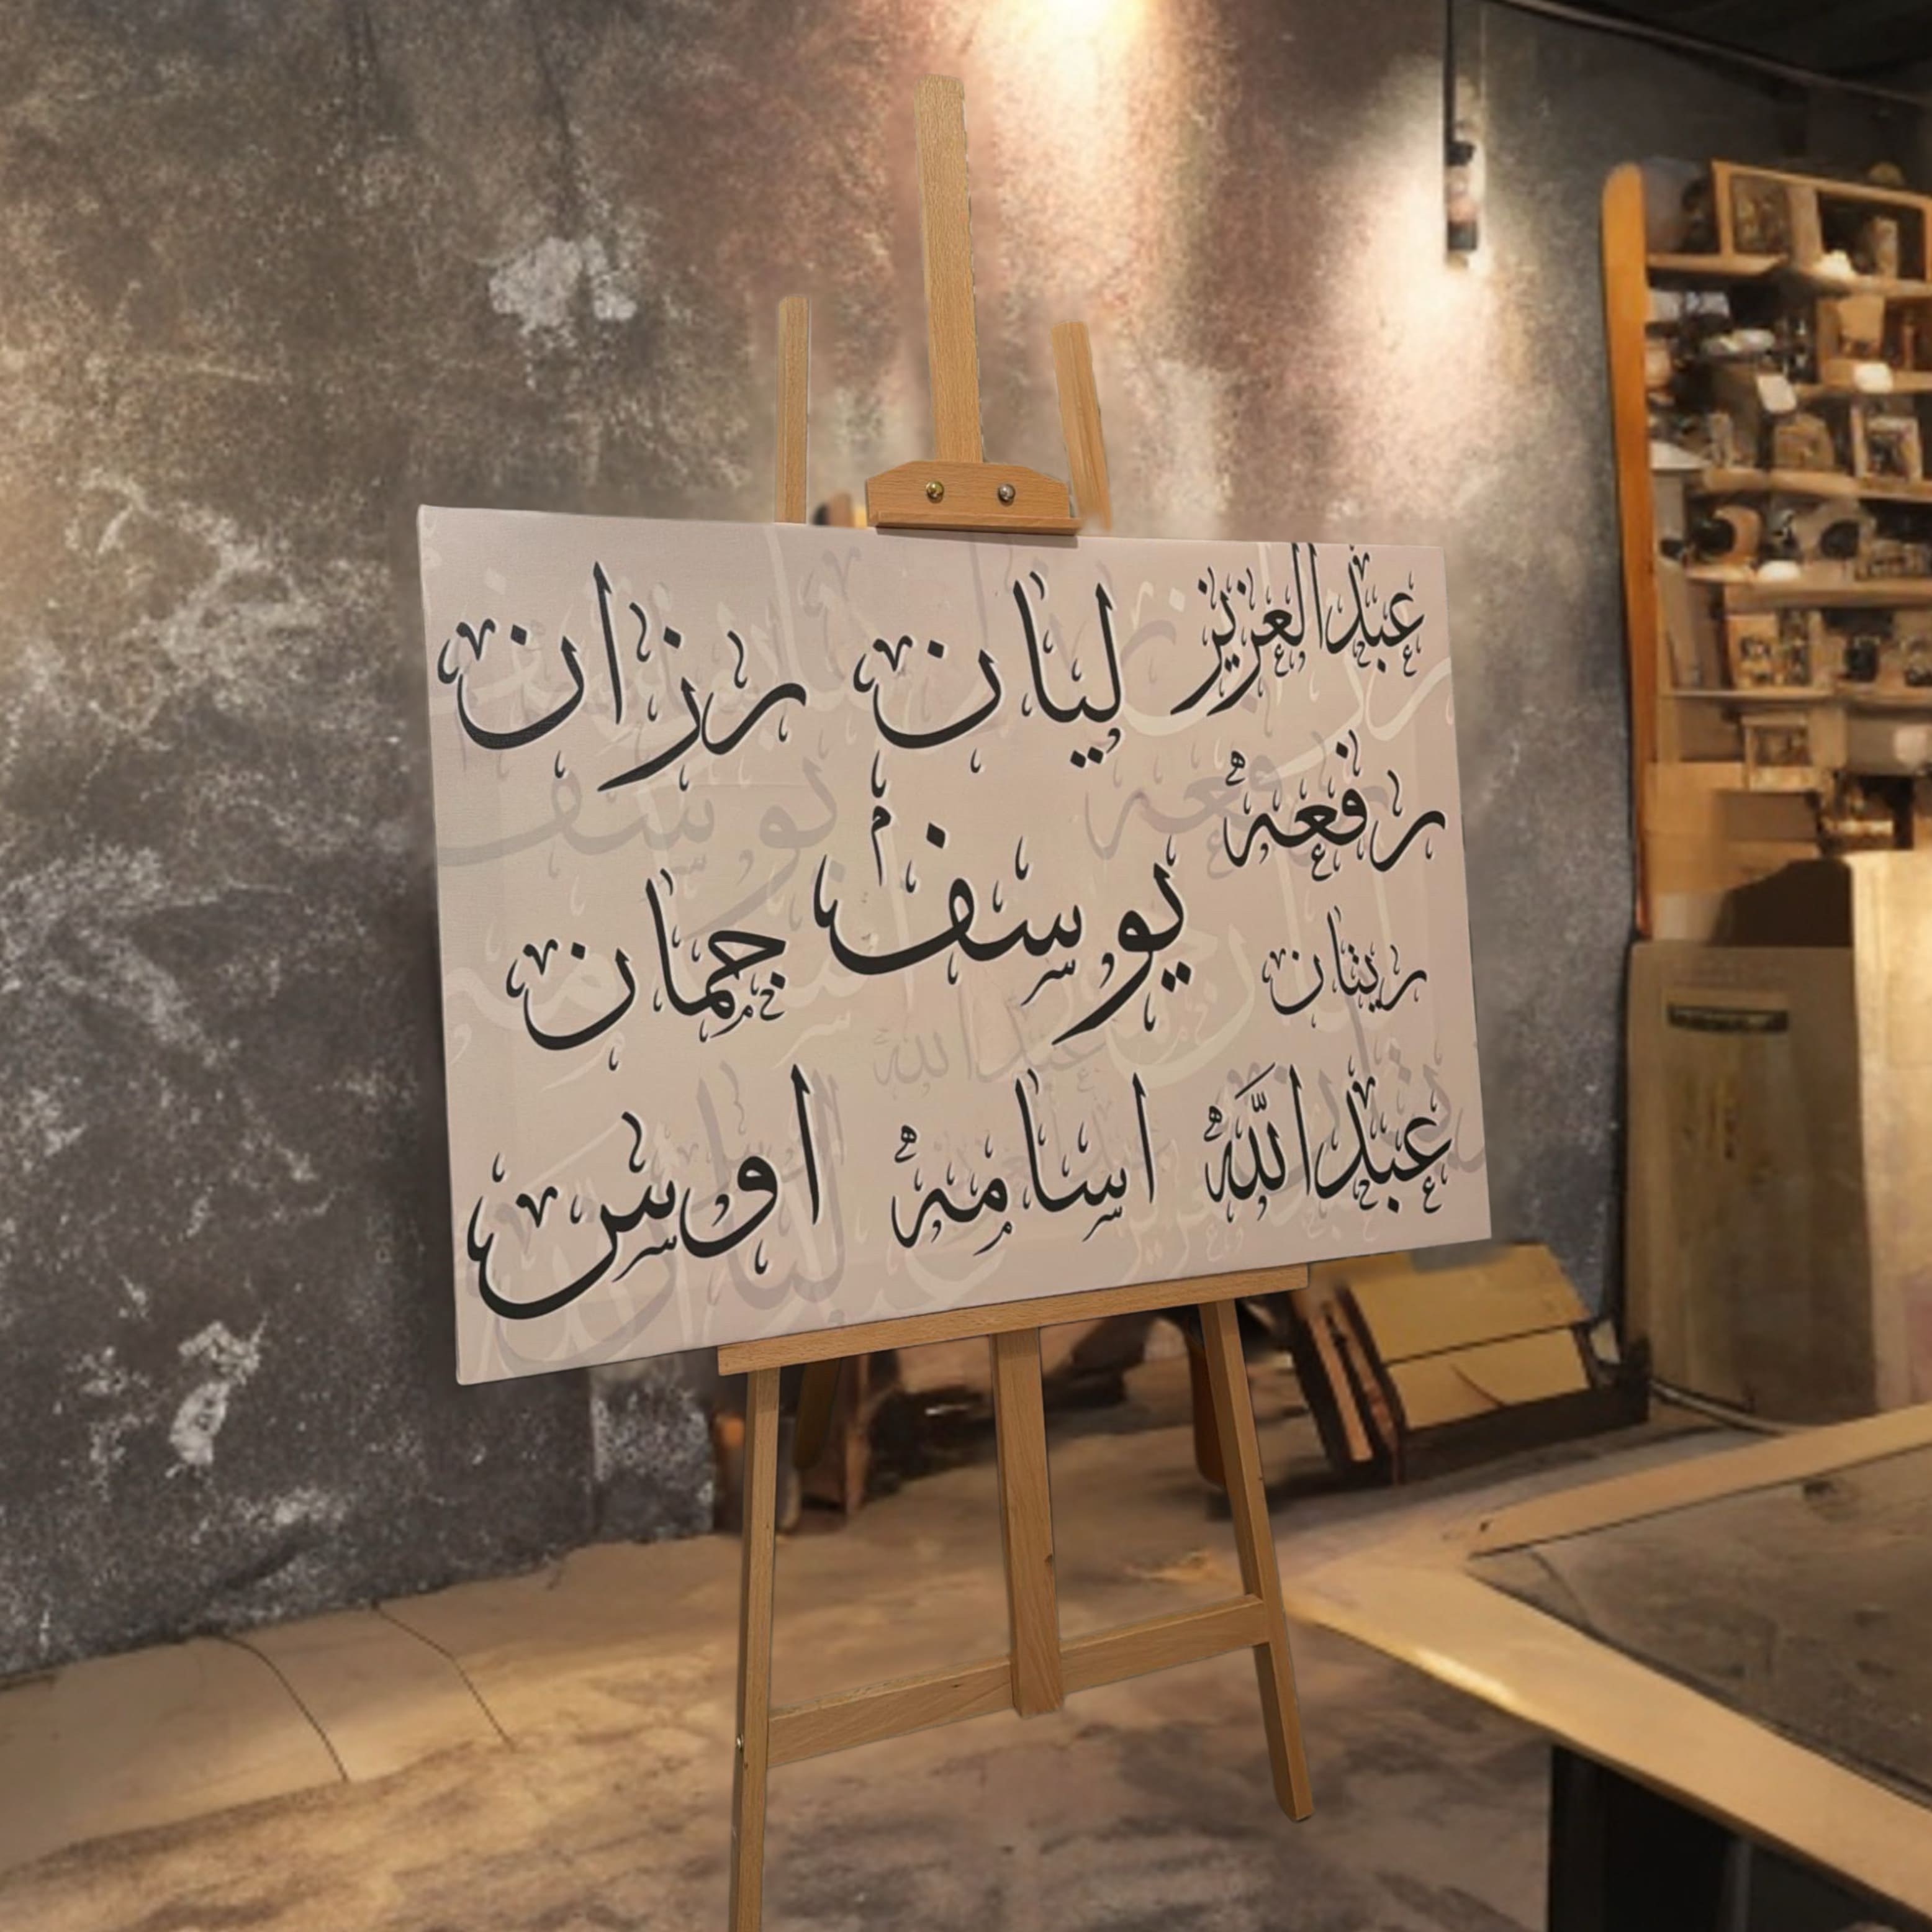 عبدالعزيز ليان رزان
رفعه
يوسف
ريتان جمان
عبدالله اسامه اوس